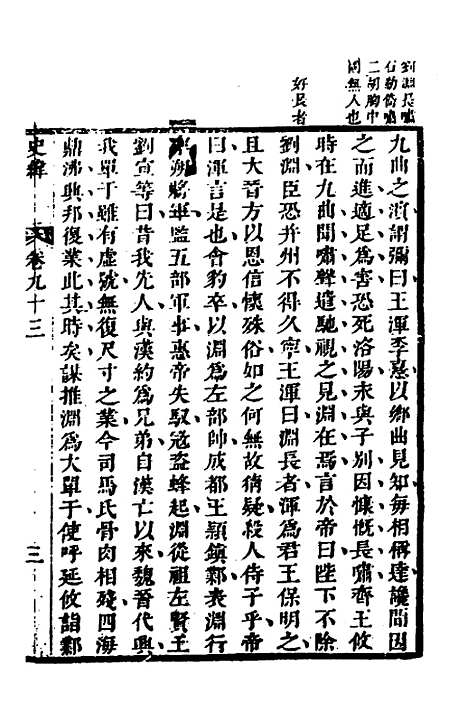 劉淵長嘯
石勒倚嘯
二胡胸中
固無人也
好長者
九曲之濱謂彌曰王渾李憙以鄉曲見知每相稱達讒間因
之而進適足爲害恐死洛陽永與子別因慷慨長嘯齊王攸
時在九曲聞嘯聲遣馳視之見淵在焉言於帝曰陛下不除
劉淵臣恐并州不得久寧王渾曰淵長者渾爲君王保明之
且大晉方以恩信懷殊俗如之何無故猜疑殺人侍子乎帝
曰渾言是也會豹卒以淵爲左部帥成都王穎鎮鄴表淵行
朔將軍監五部軍事惠帝失馭寇盜蜂起淵從祖左賢王
劉宣等曰昔我先人與漢約爲兄弟自漢亡以來魏晉代興
我單于雖有虛號無復尺寸之業今司馬氏骨肉相殘四海
鼎沸興邦復業此其時矣謀推淵爲大單于使呼延攸詣鄴
史緯
卷九十三
三